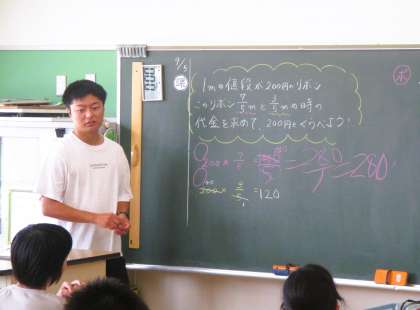 9/5
1mの値段が200円のリボン
このリボン 7/5 mと 3/5 mの時の
代金を求めて、200円とくらべよう
200× 7/5 = 280/1 = 280
200× 3/5 = 120